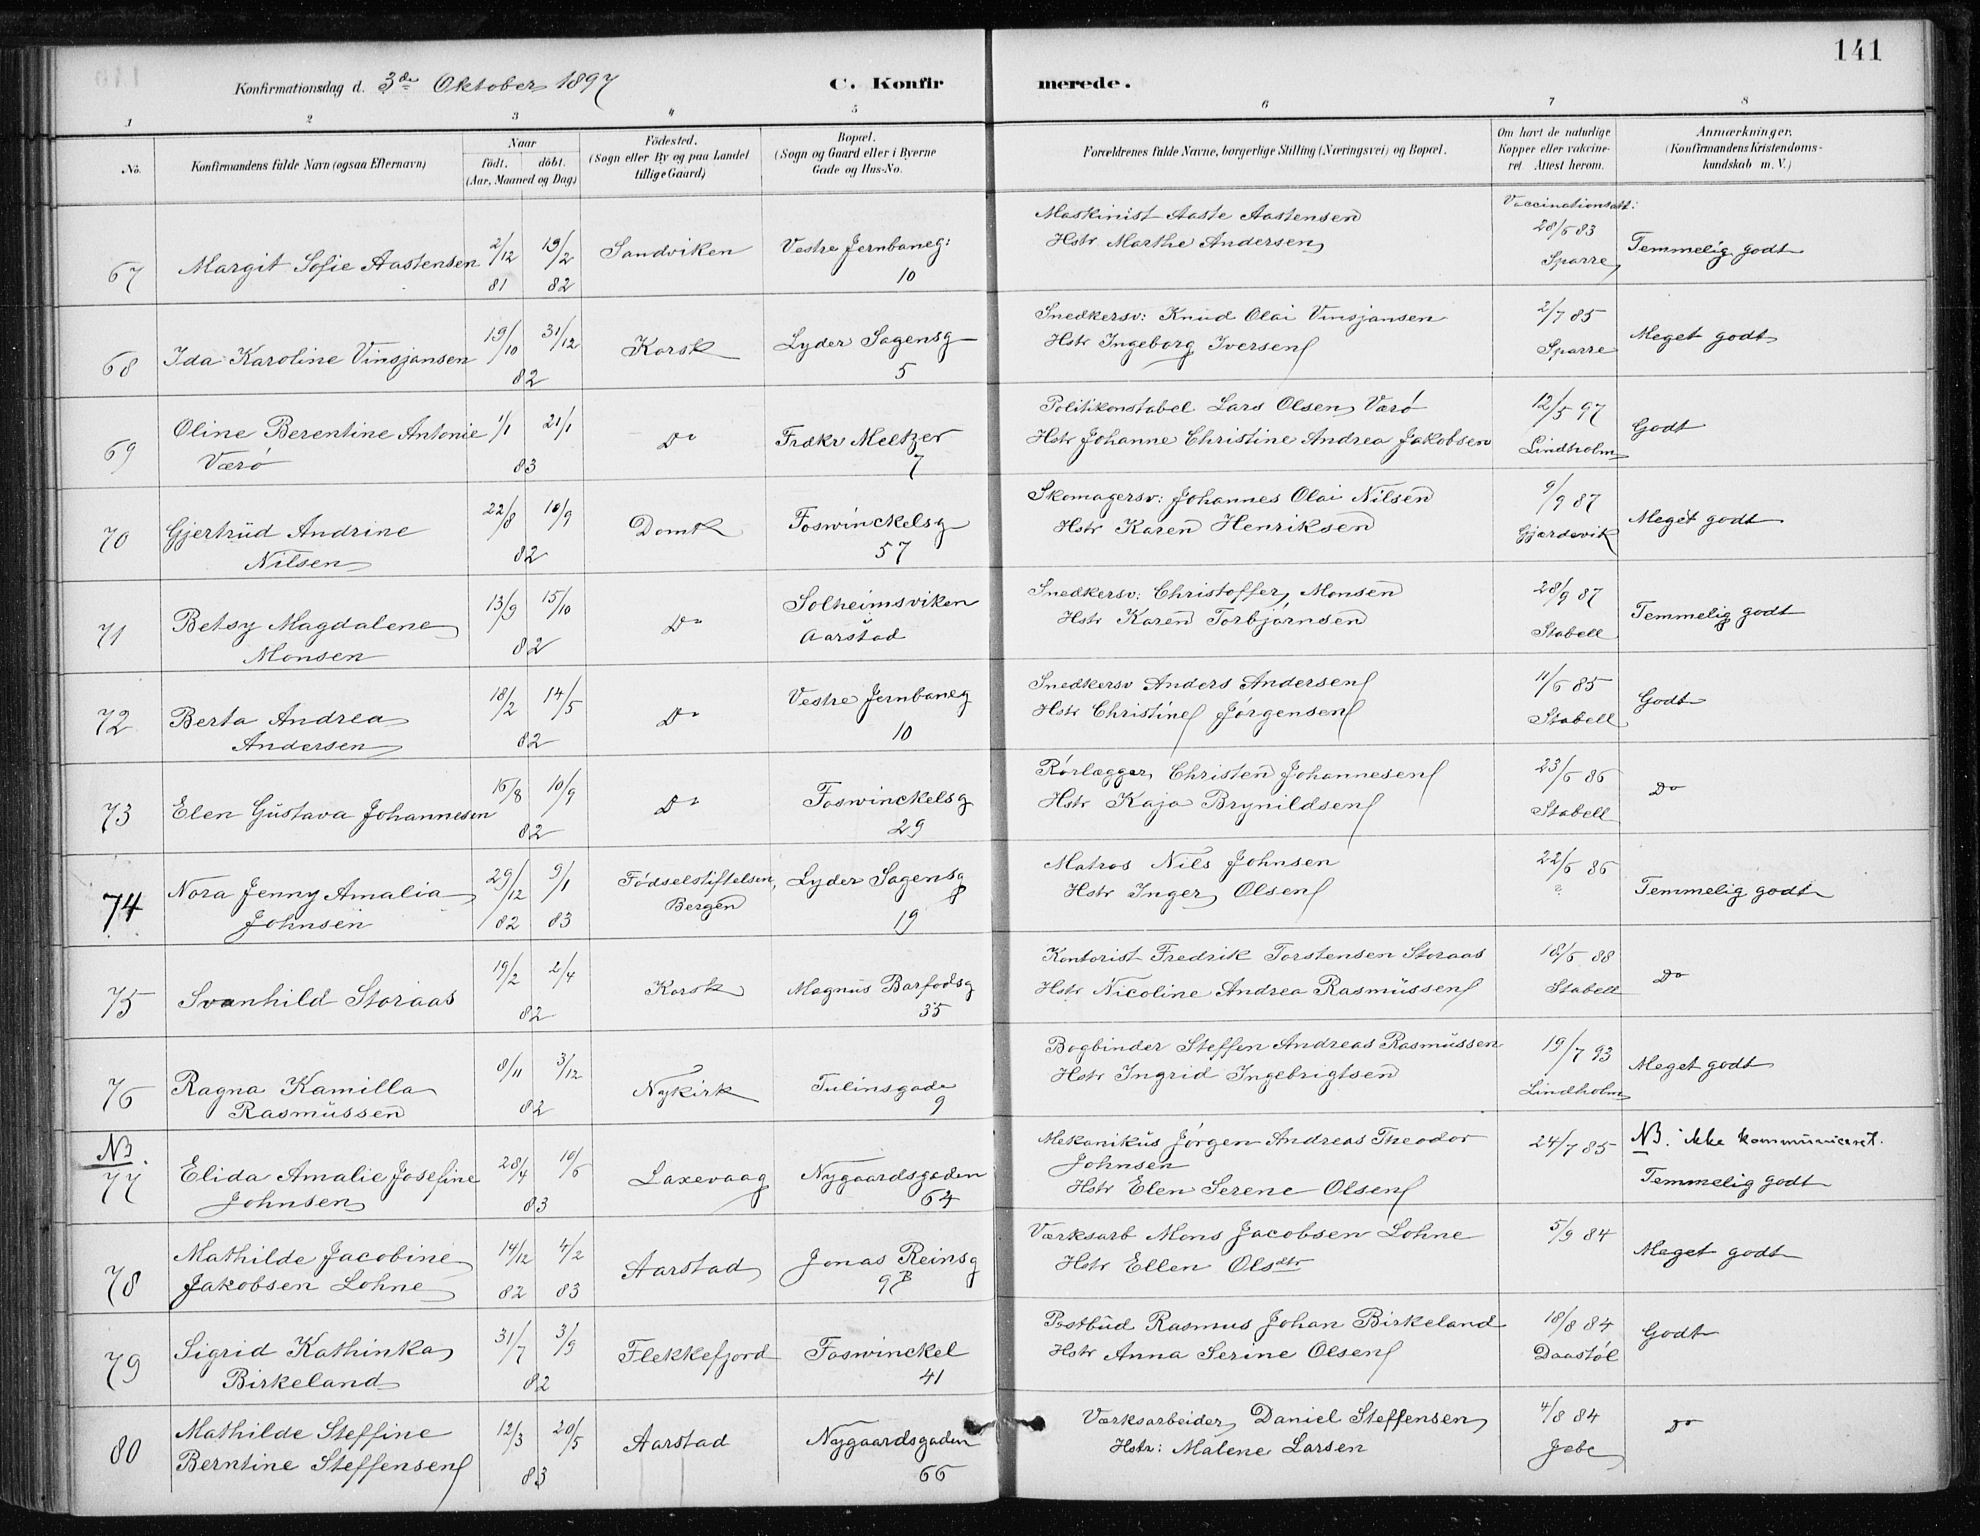 141
Konfirmationsdag d. 3de Oktober 1897 C. Konfirmerede.
1 2 3 4 5 6 7 8
No. Konfirmandens fulde Navn (ogsaa Efternavn) Naar født. døbt. (Aar, Maaned og Dag) Fødested. (Sogn eller By og paa Landet tillige Gaard) Bopæl. (Sogn og Gaard eller i Byerne Gade og Hus-No. Forældrenes fulde Navne, borgerlige Stilling (Næringsvei) og Bopæl. Om havt de naturlige Kopper eller vakcineret. Attest herom. Anmærkninger. (Konfirmandens Kristendomskundskab m. V.)
67 Margit Sofie Aastensen 2/12 81 19/2 82 Sandviken Vestre Jernbaneg: 10 Maskinist Aaste Aastensen Hstr Marthe Andersen Vaccinationsatt: 28/6 83 Sparre Temmelig godt
68 Ida Karoline Vinsjansen 19/10 31/12 82 Korsk Lyder Sagensg 5 Snedkersv: Knud Olai Vinsjansen Hstr Ingeborg Iversen 2/7 85 Sparre Meget godt
69 Oline Berentine Antonie Værø 1/1 21/1 83 Do Fr Meltzer 7 Politikonstabel Lars Olsen Værø Hstr Johanne Christine Andrea Jakobsen 12/5 97 Lindholm Godt
70 Gjertrud Andrine Nilsen 22/8 10/9 82 Domk Foswinckelsg 57 Skomagersv: Johannes Olai Nilsen Hstr Karen Henriksen 9/9 87 Gjerdevik Meget godt
71 Betsy Magdalene Monsen 13/9 15/10 82 Do Solheimsviken Aarstad Snedkersv: Christoffer Monsen Hstr Karen Torbjørnsen 28/9 87 Stabell Temmelig godt
72 Berta Andrea Andersen 18/2 14/5 82 Do Vestre Jernbaneg 10 Snedkersv Anders Andersen Hstr Christine Jørgensen 11/6 85 Stabell Godt
73 Elen Gustava Johannesen 16/8 10/9 82 Do Foswinckelsg 29 Rørlægger Christen Johannesen Hstr Kaja Brynildsen 23/6 86 Stabell Do
74 Nora Jenny Amalia Johnsen 29/12 82 9/1 83 Fødselstiftelsen, Bergen Lyder Sagensg 19 Matros Nils Johnsen Hstr Inger Olsen 22/6 86 ? Temmelig godt
75 Svanhild Storaas 19/2 2/4 82 Korsk Magnus Barfodsg 35 Kontorist Fredrik Torstensen Storaas Hstr Nicoline Andrea Rasmussen 18/6 88 Stabell Do
76 Ragna Kamilla Rasmussen 8/11 3/12 82 Nykirk Tulinsgade 9 Bogbinder Steffen Andreas Rasmussen Hstr Ingrid Ingebrigtsen 19/7 93 Lindholm Meget godt
NB. 77 Elida Amalie Josefine Johnsen 28/4 10/6 83 Laxevaag Nygaardsgaden 64 Mekanikus Jørgen Andreas Theodor Johnsen Hstr Elen Serene Olsen 24/7 85 NB. ikke kommuniceret. Temmelig godt
78 Mathilde Jacobine Jakobsen Lohne 14/12 82 4/2 83 Aarstad Jonas Reinsg 9B Værksarb Mons Jacobsen Lohne Hstr Ellen Olsdtr 5/9 84 Meget godt
79 Sigrid Kathinka Birkeland 31/7 3/9 82 Flekkefjord Foswinckel 41 Postbud Rasmus Johan Birkeland Hstr Anna Serine Olsen 18/8 84 Daastøl Godt
80 Mathilde Steffine Berntine Steffensen 12/3 20/5 83 Aarstad Nygaardsgaden 66 Værksarbeider Daniel Steffensen Hstr: Malene Larsen 4/8 84 Jebe Do